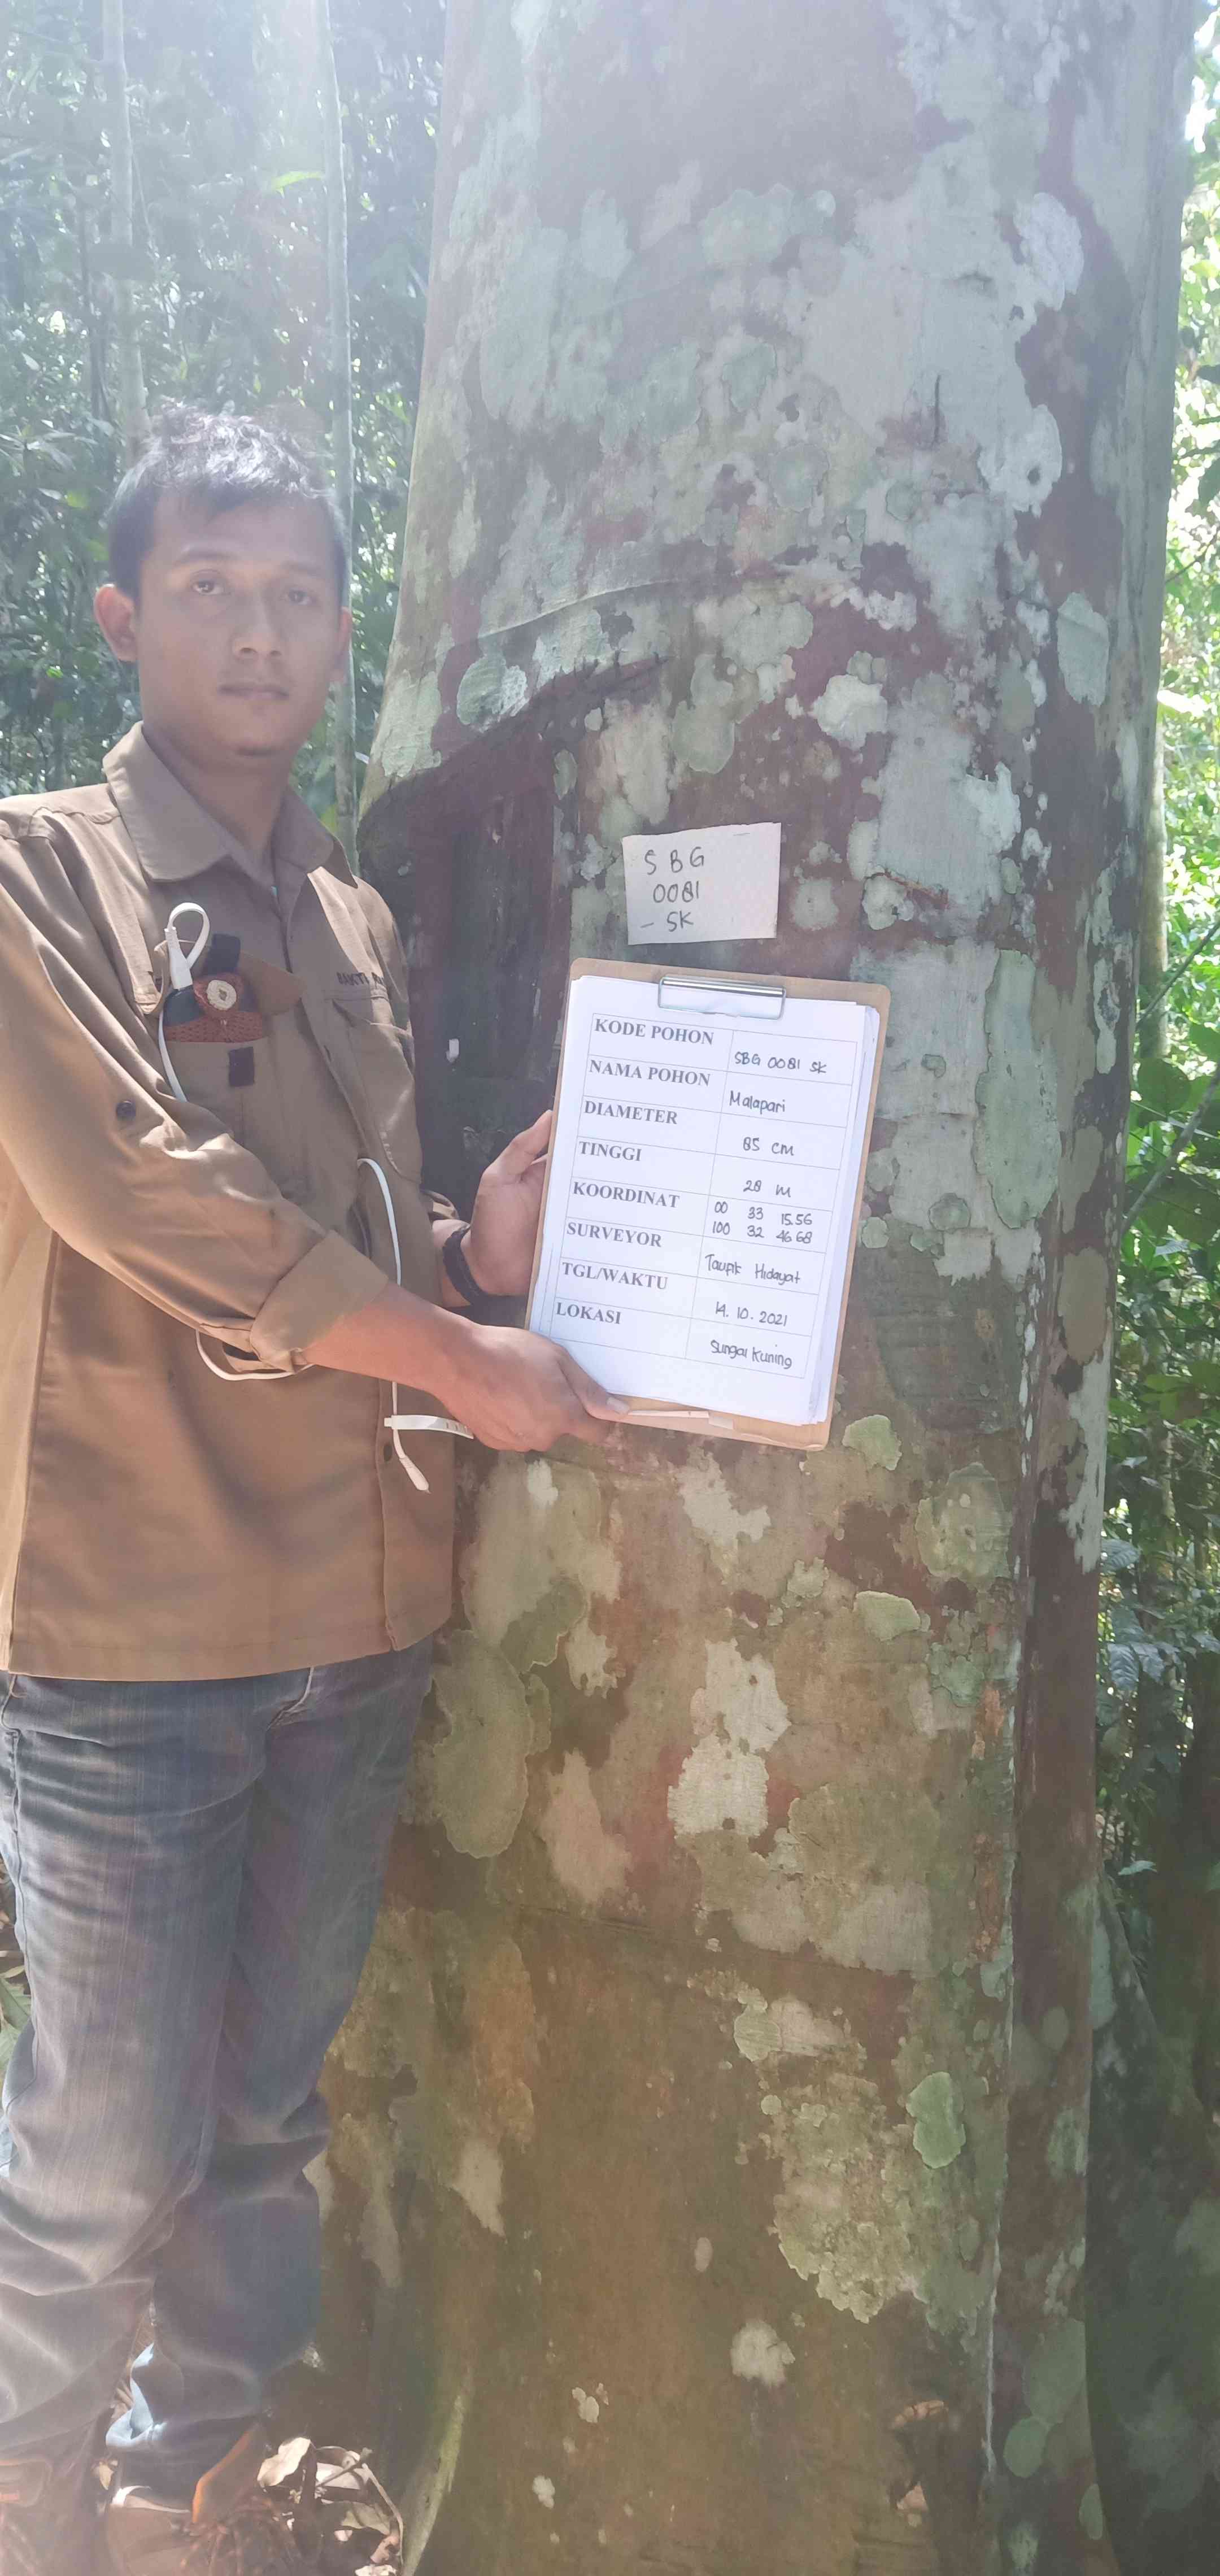 SBG
0081
- SK
KODE POHON SBG 0081 SK
NAMA POHON Malapari
DIAMETER 85 cm
TINGGI 28 m
KOORDINAT 00 33 15.56
100 32 46 68
SURVEYOR Taupik Hidayat
TGL/WAKTU 14. 10. 2021
LOKASI Sungai Kuning
BAKTI